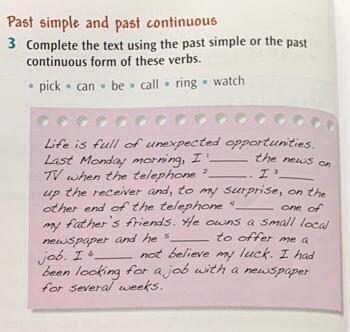 Past simple and past continuous
3 Complete the text using the past simple or the past
continuous form of these verbs.
• pick • can • be • call • ring • watch
Life is full of unexpected opportunities.
Last Monday morning, I ¹______ the news on
TV when the telephone ²______. I ³______
up the receiver and, to my surprise, on the
other end of the telephone ⁴______ one of
my father's friends. He owns a small local
newspaper and he ⁵______ to offer me a
job. I ⁶______ not believe my luck. I had
been looking for a job with a newspaper
for several weeks.